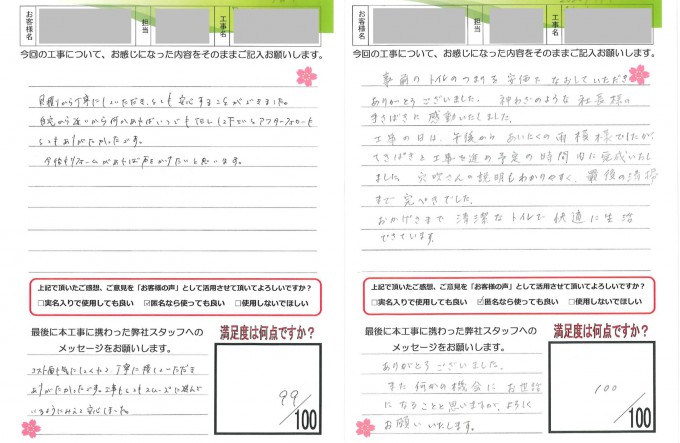 お客様名
担当
工事名
今回の工事について、お感じになった内容をそのままご記入お願いします。
見積りから丁寧にしていただき、とても安心することができました。
自宅から近いから何かあればいつでもTELして下さいとアフターフォローも
とてもありがたかったです。
今後もリフォームがあれば声をかけたいと思います。
上記で頂いたご感想、ご意見を「お客様の声」として活用させて頂いてよろしいですか？
□実名入りで使用しても良い ☑匿名なら使っても良い □使用しないでほしい
最後に本工事に携わった弊社スタッフへの
メッセージをお願いします。
コスト面も気にしてくれて、丁寧に接していただき
ありがたかったです。工事もとてもスムーズに進んで
いるようにみえて安心しました。
満足度は何点ですか？
99
/100
お客様名
担当
工事名
今回の工事について、お感じになった内容をそのままご記入お願いします。
事前のトイレのつまりを安価でなおしていただき
ありがとうございました。神わざのような社長様の
手さばきに感動いたしました。
工事の日は、午後からあいにくの雨模様でしたが、
てきぱきと工事を進め予定の時間内に完成いたし
ました 穴吹さんの説明もわかりやすく、最後の清掃
まで完ぺきでした。
おかげさまで清潔なトイレで快適に生活
できています。
上記で頂いたご感想、ご意見を「お客様の声」として活用させて頂いてよろしいですか？
□実名入りで使用しても良い ☑匿名なら使っても良い □使用しないでほしい
最後に本工事に携わった弊社スタッフへの
メッセージをお願いします。
ありがとうございました。
また何かの機会にお世話
になることと思いますが、よろしく
お願いいたします。
満足度は何点ですか？
100
/100